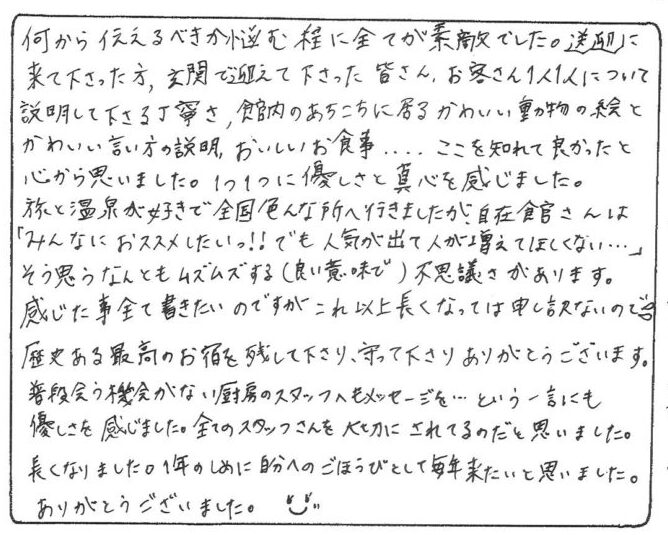 何から伝えるべきか悩む程に全てが素敵でした。送迎に
来て下さった方、玄関で迎えて下さった皆さん、お客さん1人1人について
説明して下さる丁寧さ、館内のあちこちに居るかわいい動物の絵と
かわいい言い方の説明、おいしいお食事‥‥ここを知れて良かったと
心から思いました。1つ1つに優しさと真心を感じました。
旅と温泉が好きで全国色んな所へ行きましたが、自在館さんは
「みんなにおススメしたいっ!!でも人気が出て人が増えてほしくない…」
そう思うなんともムズムズする(良い意味で)不思議さがあります。
感じた事全て書きたいのですがこれ以上長くなっては申し訳ないので
歴史ある最高のお宿を残して下さり、守って下さりありがとうございます。
普段会う機会がない厨房のスタッフへもメッセージを…という一言にも
優しさを感じました。全てのスタッフさんを大切にされてるのだと思いました。
長くなりました。1年のしめに自分へのごほうびとして毎年来たいと思いました。
ありがとうございました。